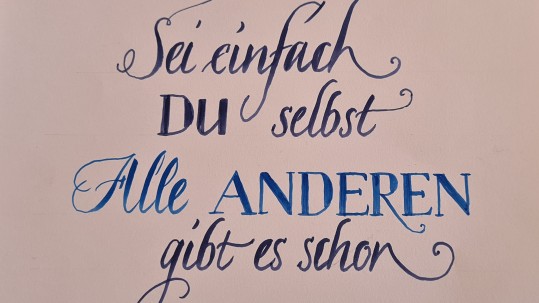 Sei einfach
DU selbst
Alle ANDEREN
gibt es schon